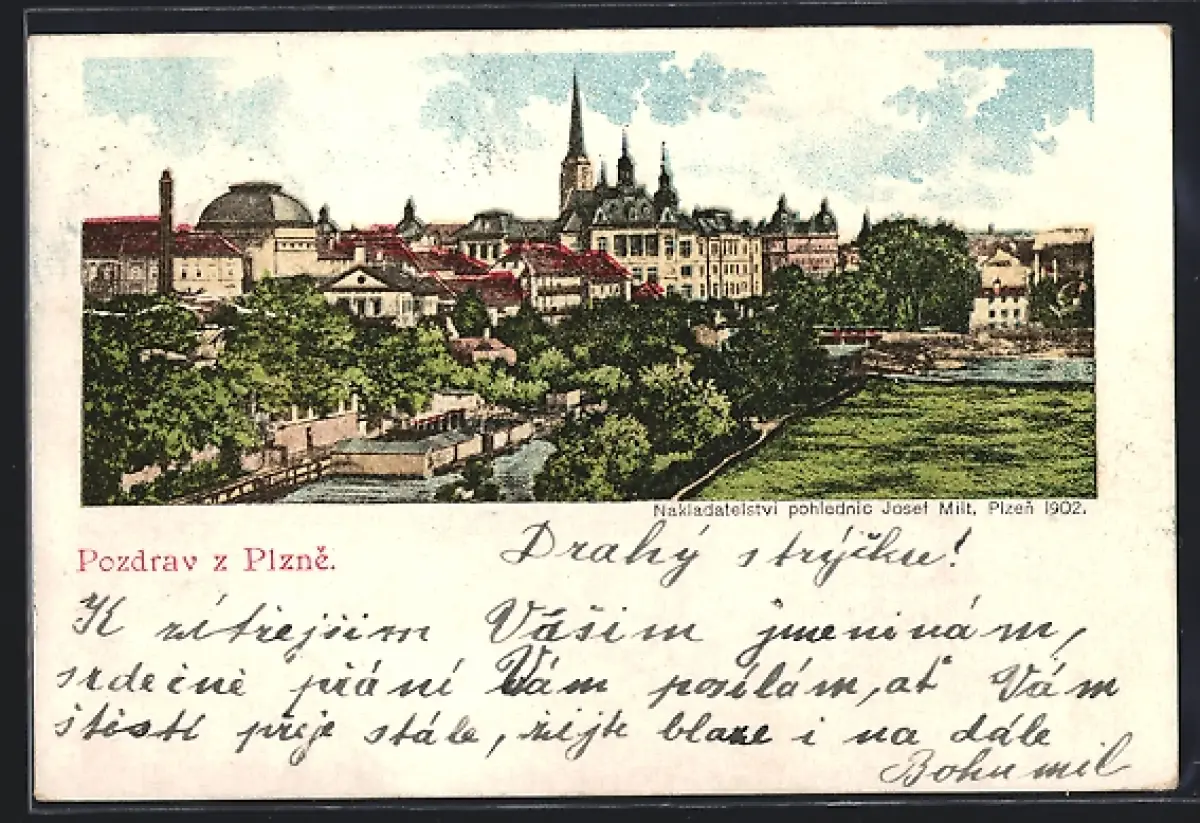 Nakladatelství pohlednic Josef Milt, Plzeň 1902.
Pozdrav z Plzně.
Drahý strýčku!
K zítřejším Vašim jmeninám,
srdečné přání Vám posílám, ať Vám
štěstí přeje stále, žijte blaze i na dále
Bohumil